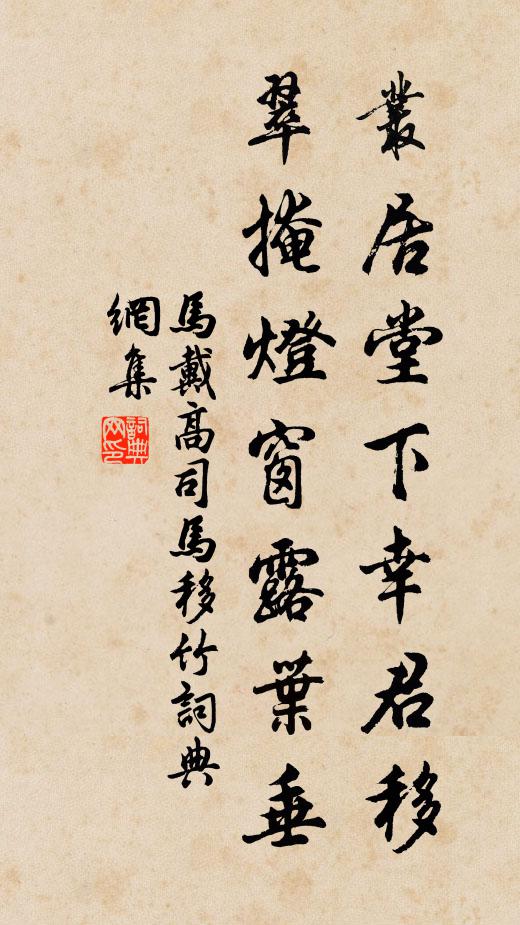 叢居堂下幸君移
翠掩燈窗露葉垂
馬戴高司馬移竹詞典
網集
詞典
網印